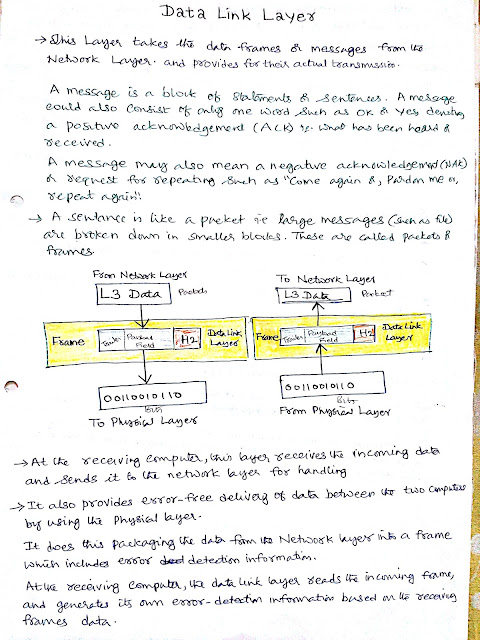 Data Link Layer
→ This Layer takes the data frames or messages from the
Network Layer. and provides for their actual transmission.
A message is a block of statements or sentences. A message
could also consist of only one word such as OK or Yes denoting
a positive acknowledgement (ACK) ie. what has been heard or
received.
A message may also mean a negative acknowledgement (NAK)
or request for repeating such as "Come again or, Pardon me or,
repeat again".
→ A sentence is like a packet i.e large messages (such as file)
are broken down in smaller blocks. These are called packets or
frames.
From Network Layer
L3 Data Packets
Frame Trailer Payload Field H2 Data Link Layer
00110010110
Bits
To Physical Layer
To Network Layer
L3 Data Packet
Frame Trailer Payload Field H2 Data Link Layer
00110010110
Bits
From Physical Layer
→ At the receiving computer, this layer receives the incoming data
and sends it to the network layer for handling
→ It also provides error-free delivery of data between the two computers
by using the Physical layer.
It does this packaging the data from the Network layer into a frame
which includes error detection information.
At the receiving computer, the data link layer reads the incoming frame,
and generates its own error-detection information based on the receiving
frames data.